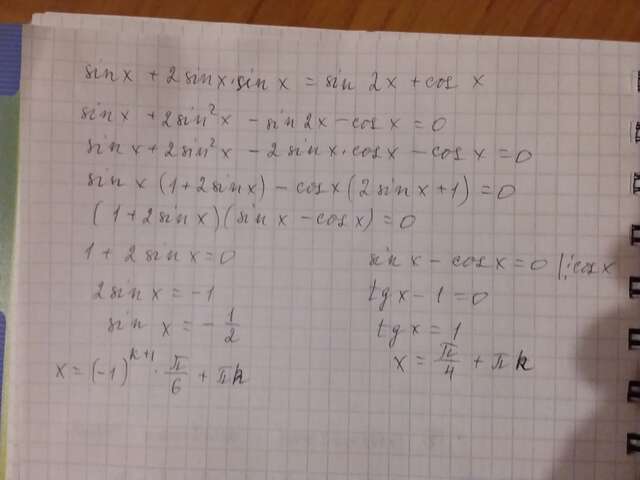 sin x + 2 sin x · sin x = sin 2x + cos x
sin x + 2 sin² x - sin 2x - cos x = 0
sin x + 2 sin² x - 2 sin x · cos x - cos x = 0
sin x (1 + 2 sin x) - cos x (2 sin x + 1) = 0
(1 + 2 sin x)(sin x - cos x) = 0
1 + 2 sin x = 0
2 sin x = -1
sin x = - 1/2
x = (-1)^(k+1) · π/6 + πk
sin x - cos x = 0 |: cos x
tg x - 1 = 0
tg x = 1
x = π/4 + πk